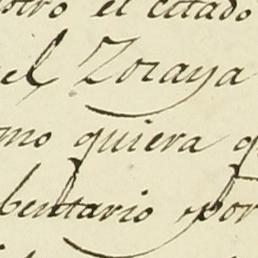 otro el citado
el Zoraya
mo quiera q
bentario por